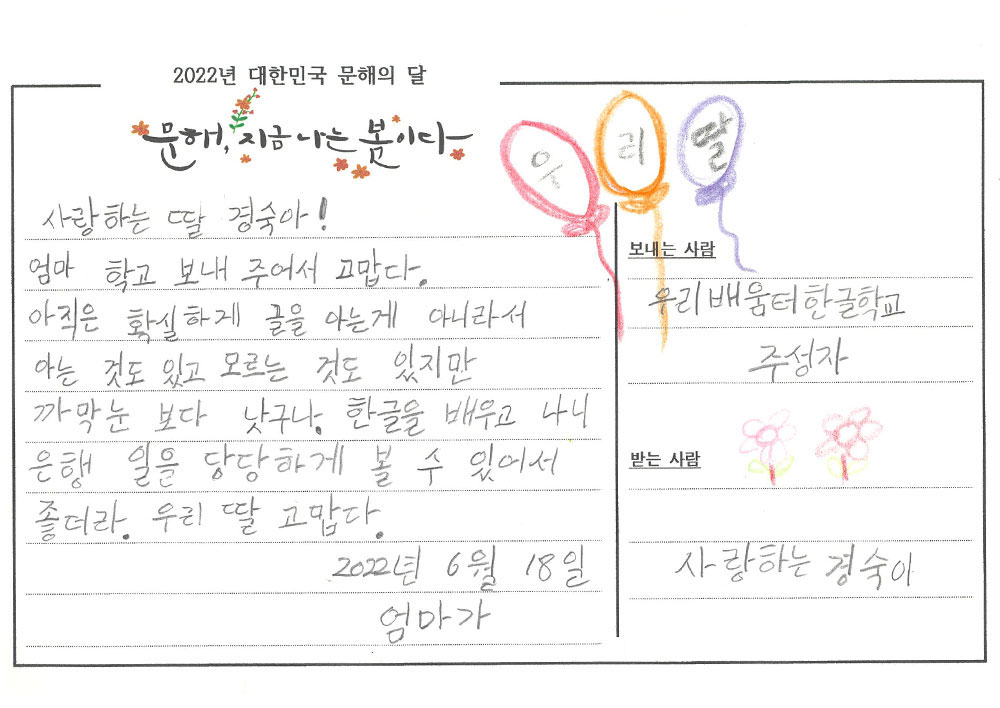 2022년 대한민국 문해의 달
문해, 지금 나는 봄이다
우리딸
사랑하는 딸 경숙아!
엄마 학교 보내 주어서 고맙다.
아직은 확실하게 글을 아는게 아니라서
아는 것도 있고 모르는 것도 있지만
까막눈 보다 낫구나. 한글을 배우고 나니
은행 일을 당당하게 볼 수 있어서
좋더라. 우리 딸 고맙다.
2022년 6월 18일
엄마가
보내는 사람
우리배움터한글학교
주성자
받는 사람
사랑하는 경숙아